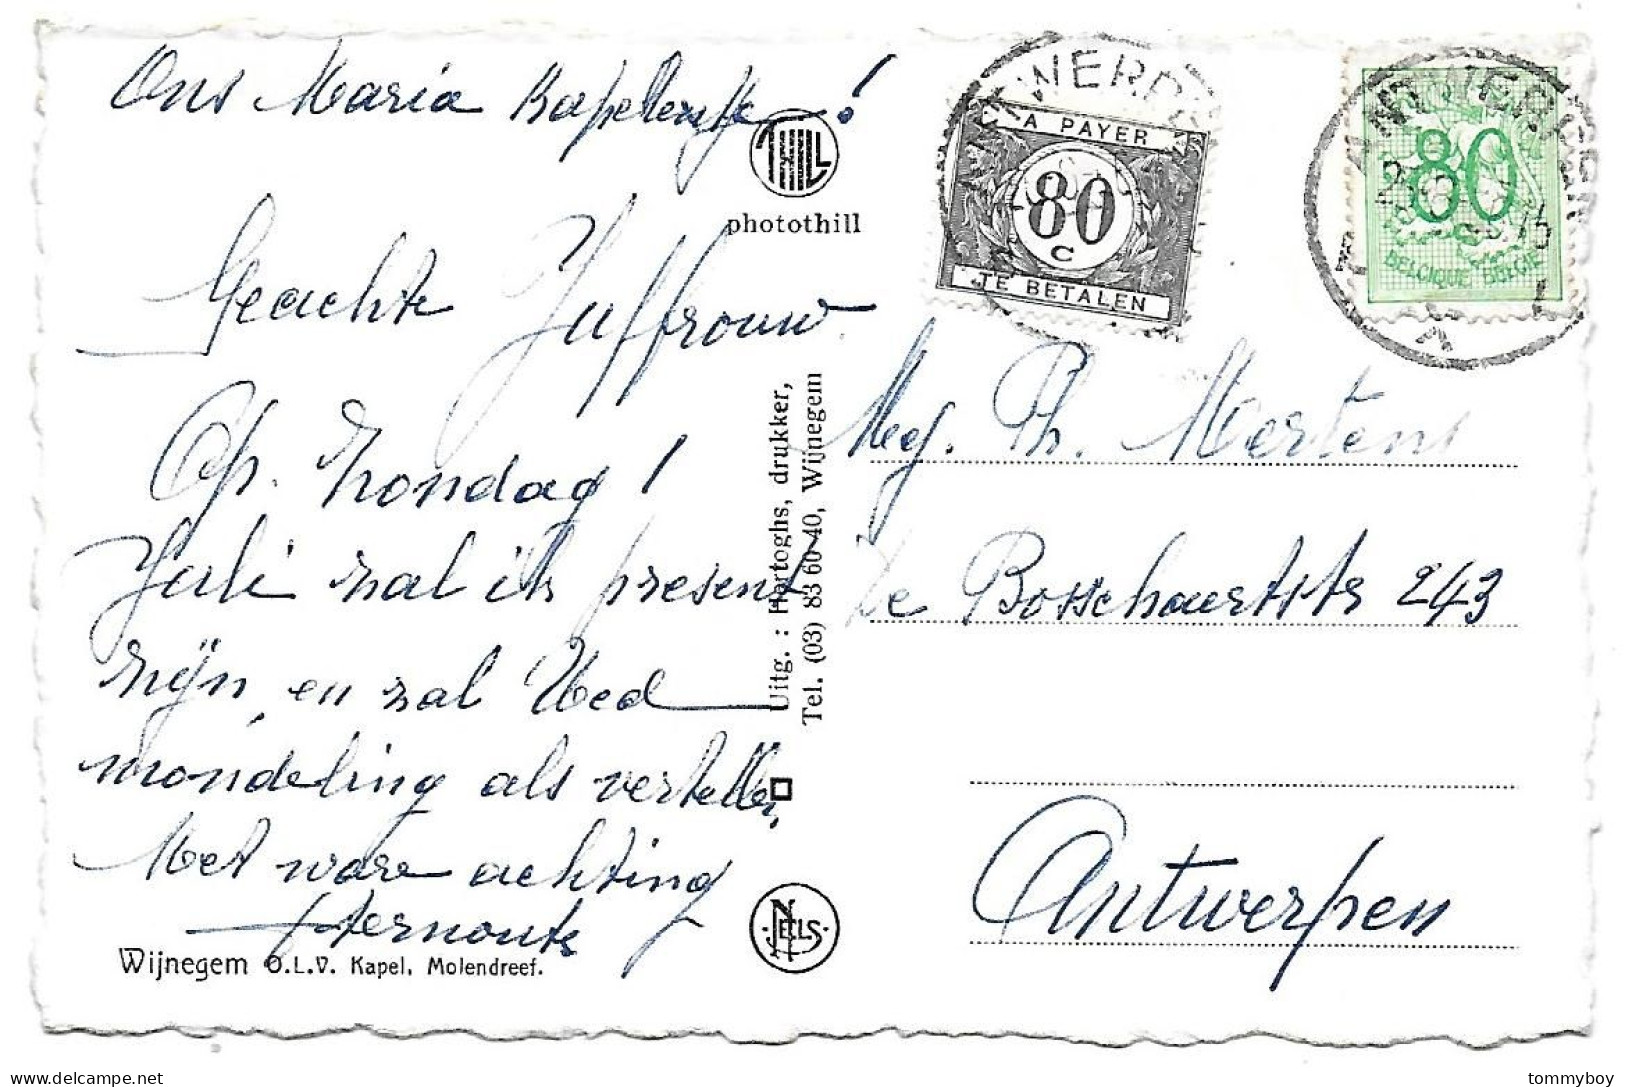 Ons Maria Kapelleke !
THILL
photothill
Geachte Juffrouw.
Op. Zondag 1
Juli zal ik present
zijn, en zal Ued
mondeling als vertellen,
Met ware achting
Uitg. : Hartoghs, drukker,
Tel. (03) 83 60 40, Wijnegem
NELS
Wijnegem O.L.V. Kapel. Molendreef.
A PAYER
80
C
TE BETALEN
ANTWERPEN
ANTWERPEN
80
BELGIQUE BELGIE
Mej. Th. Mertens
De Bosschaertstr 243
Antwerpen
tommyboy
delcampe.net